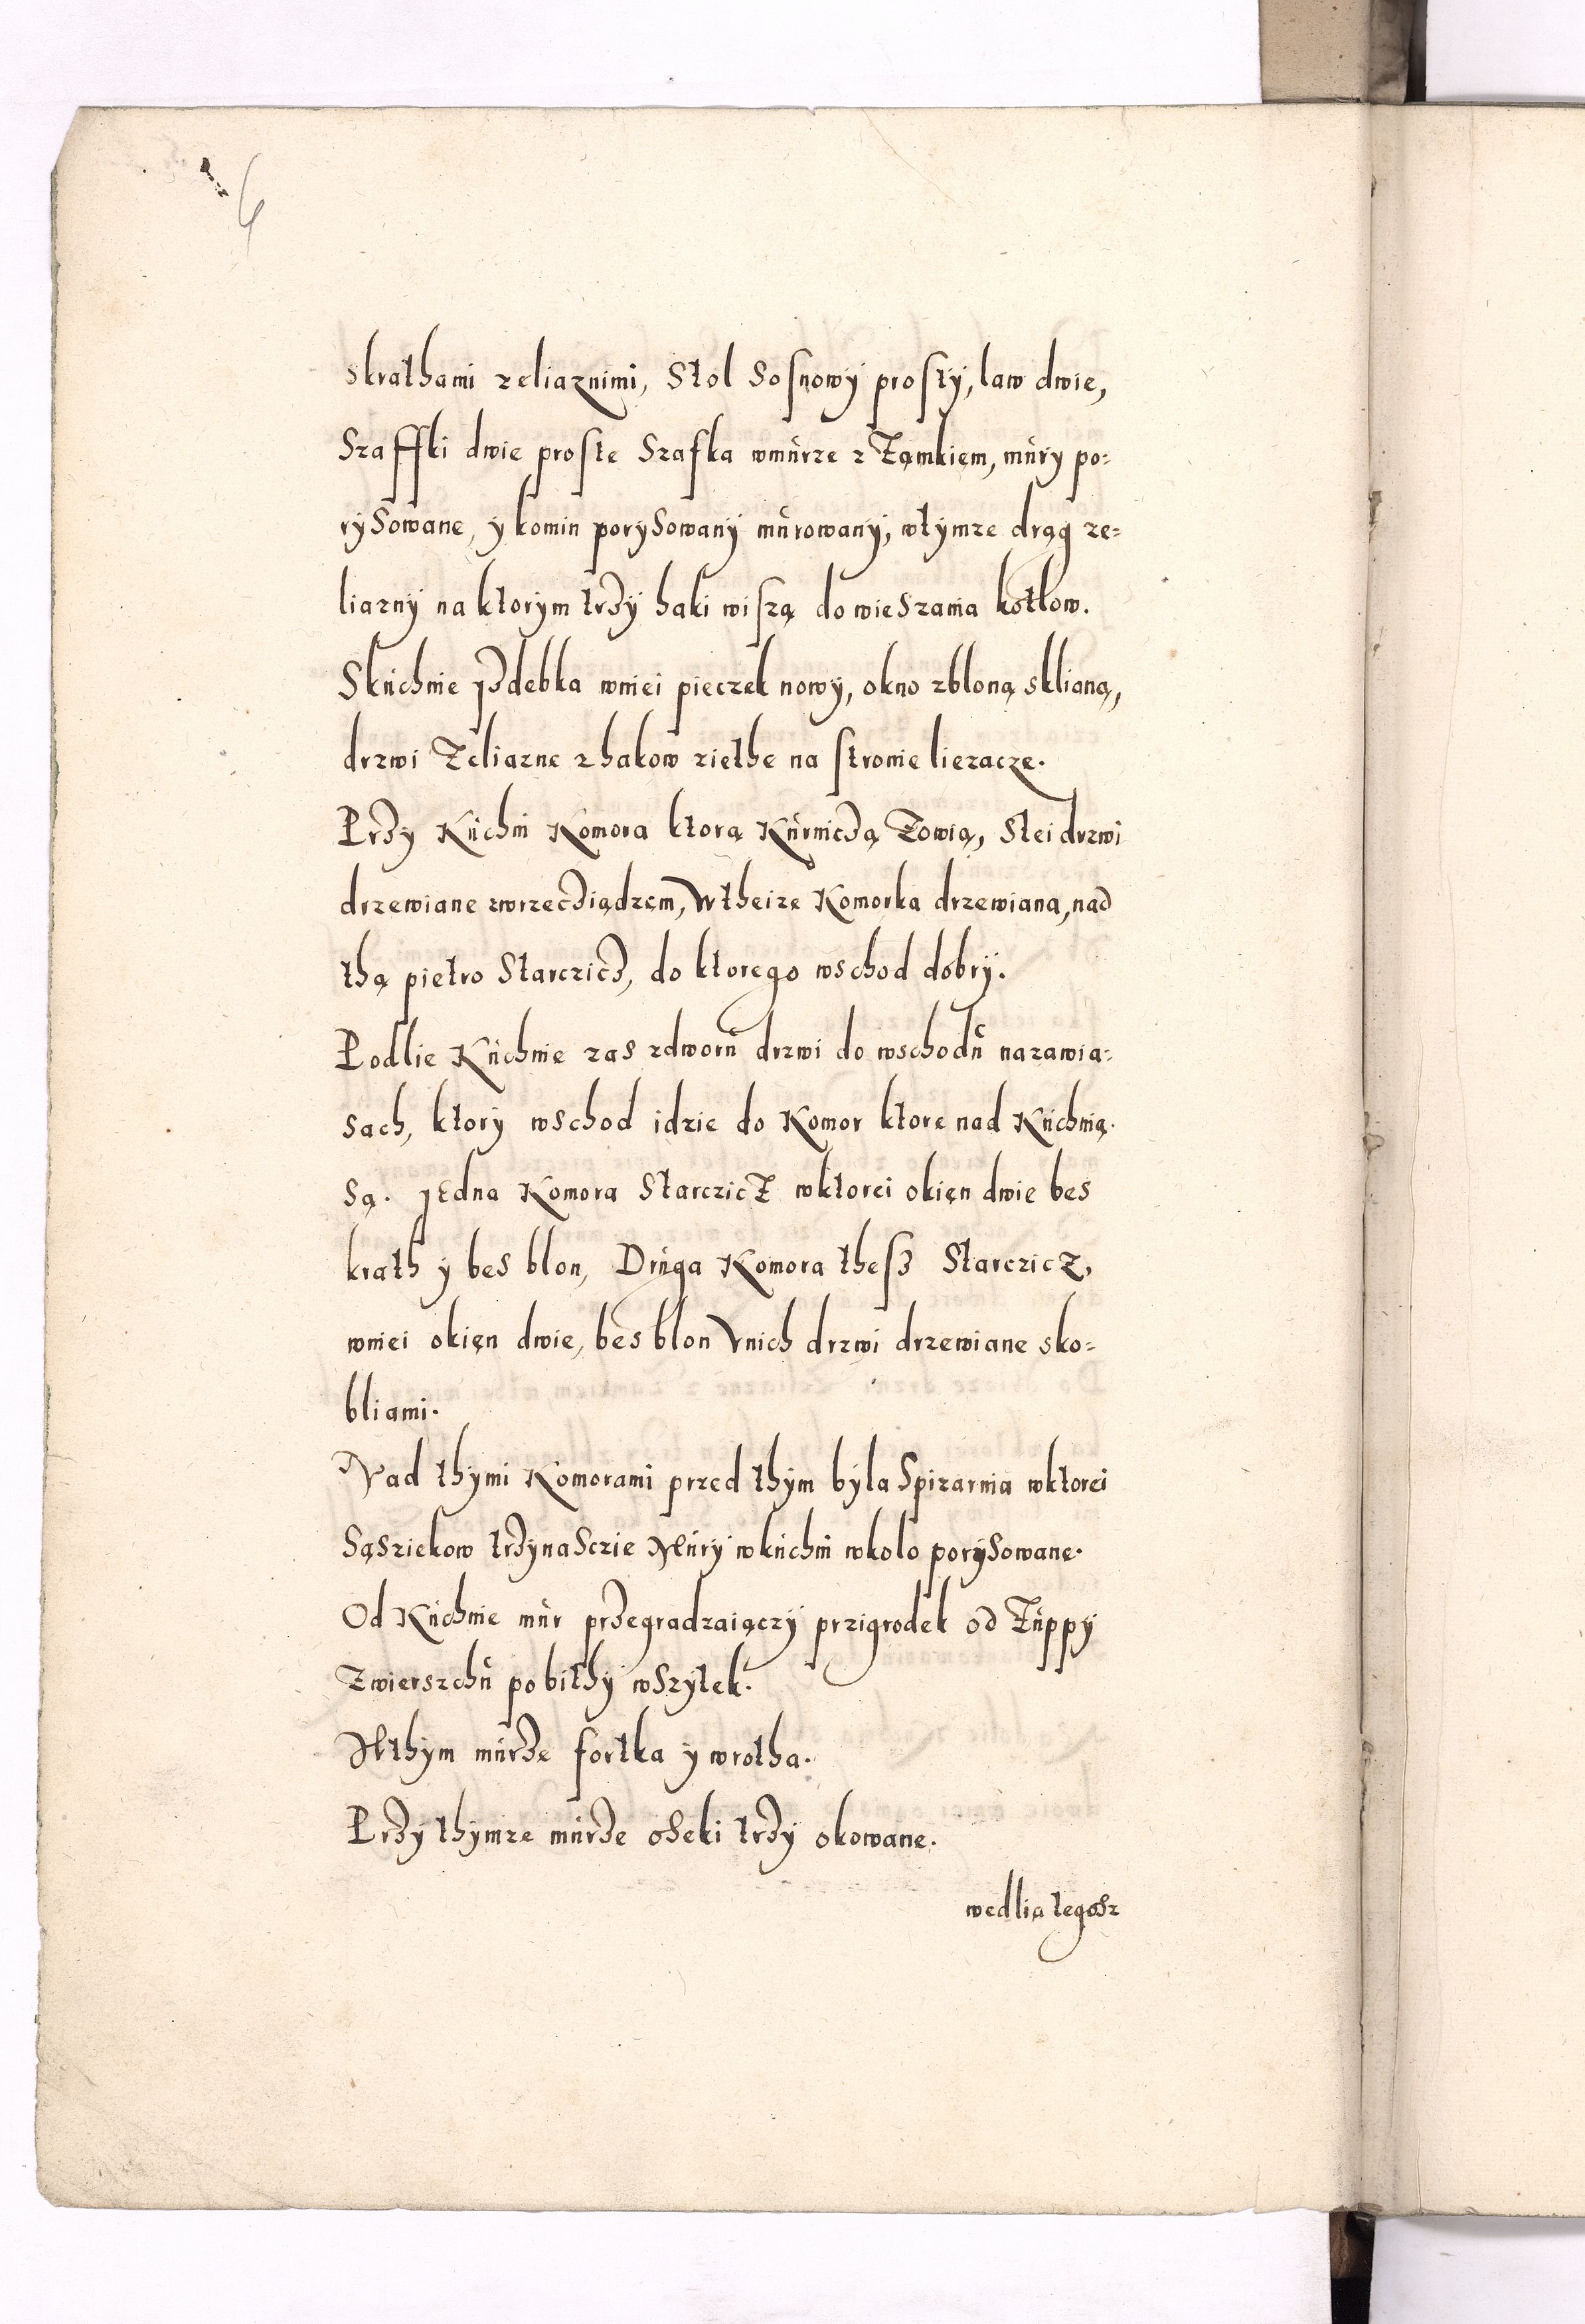 4
skrathami zeliaznimi, Stol Sosnowy prosty, law dwie,
Szaffki dwie proste Szafka wmurze z Zamkiem, mury po=
rysowane, y komin porysowany murowany, wtymze drąg ze=
liazny na ktorym trzy haki wiszą do wieszania kotlow.
Skuchnie yzdebka wniei pieczek nowy, okno zbloną sklianą,
drzwi Zeliazne zhakow zięthe na stronie liezacze.
Przy Kuchni Komora ktorą Kurniczą Zowią, Stei drzwi
drzewiane zwrzecziądzem, Wtheize Komorka drzewiana, nad
thą pietro Starczicz, do ktorego wschod dobry.
Podlie Kuchnie zas zdworu drzwi do wschodu nazawia=
sach, ktory wschod idzie do Komor ktore nad Kuchnią
są. Jedna Komora Starczicz wktorei okięn dwie bes
krath y bes blon, Druga Komora thesz Starczicz,
wniei okięn dwie, bes blon Vnich drzwi drzewiane sko=
bliami.
Nad thymi Komorami przed thym byla Spizarnia wktorei
Sąsziekow trzynasczie Mury wkuchni wkolo porysowane.
Od Kuchnie mur przegradzaiączy przigrodek od Zuppy
Zwierszchu pobithy wszytek.
Wthym murze fortka y wrotha.
Przy thymze murze oseki trzy okowane.
wedlia tegosz